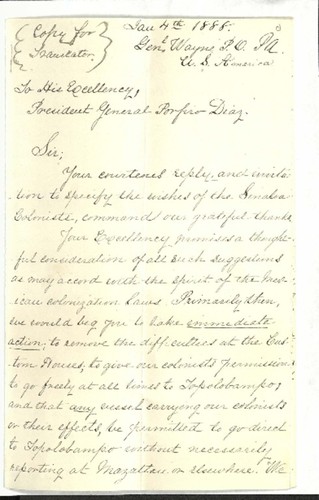 Copy for
Translator.
Jan 4th 1888.
Genl Wayne P.O. PA.
U. S. America
To His Excellency,
President General Porfiro Diaz.
Sir;
Your courteous reply, and invita-
-tion to specify the wishes of the Sinaloa
Colonists, command our grateful thanks
Your Excellency promises a thought-
ful consideration of all such suggestions
as may accord with the spirit of the Mex-
ican colonization laws. Primarily then,
we would beg you to take immediate
action; to remove the difficulties at the Cus-
tom Houses, to give our colonists permission
to go freely at all times to Topolobampo;
and that any vessel carrying our colonists
or their effects, be permitted to go direct
to Topolobampo without necessarily
reporting at Mazatlan or elsewhere. We